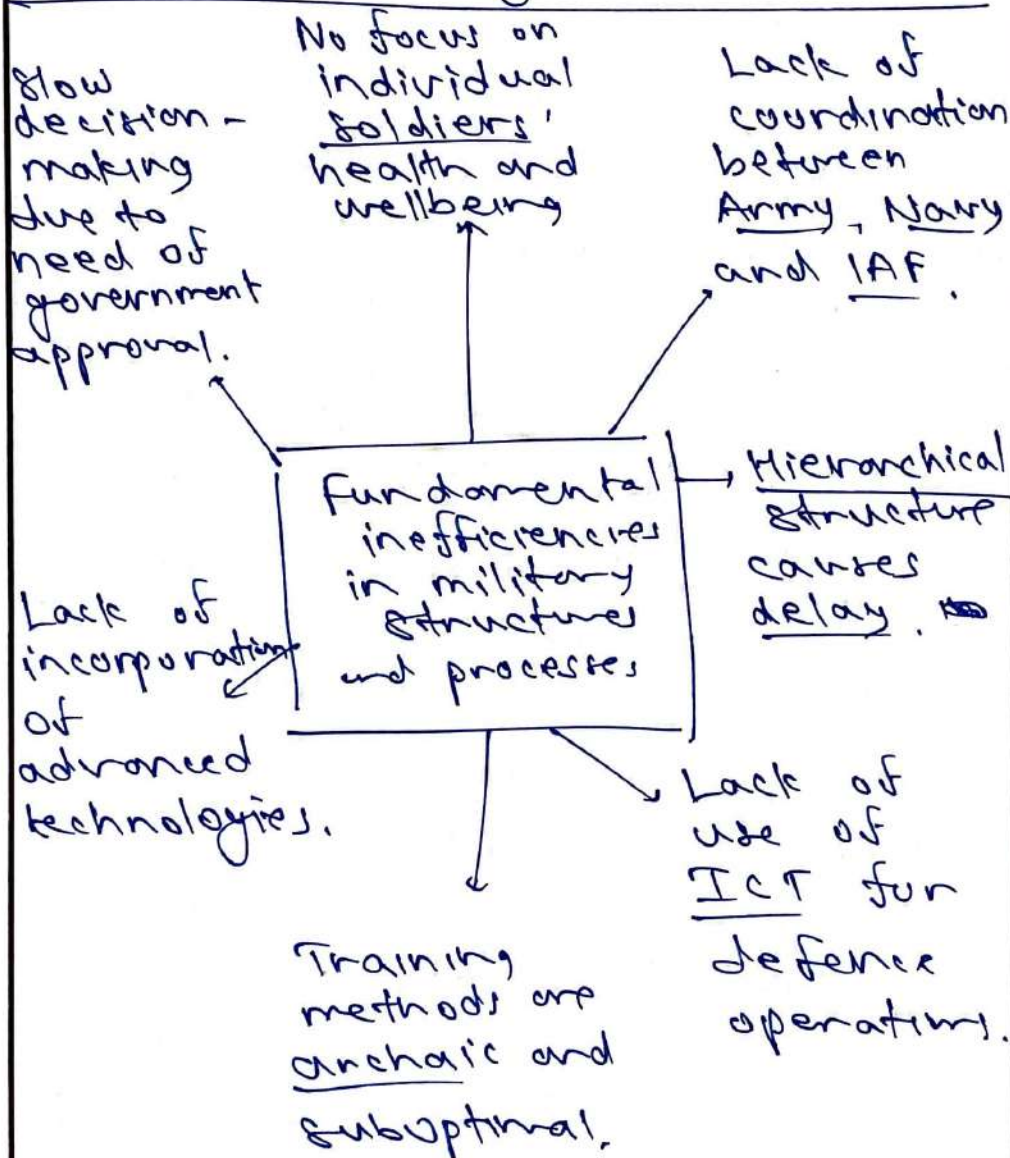 Slow
decision-
making
due to
need of
government
approval.
No focus on
individual
soldiers'
health and
wellbeing
Lack of
coordination
between
Army, Navy
and IAF.
Fundamental
inefficiencies
in military
structures
and processes
Hierarchical
structure
causes
delay.
Lack of
incorporation
of
advanced
technologies.
Training
methods are
archaic and
suboptimal.
Lack of
use of
ICT for
defence
operations.